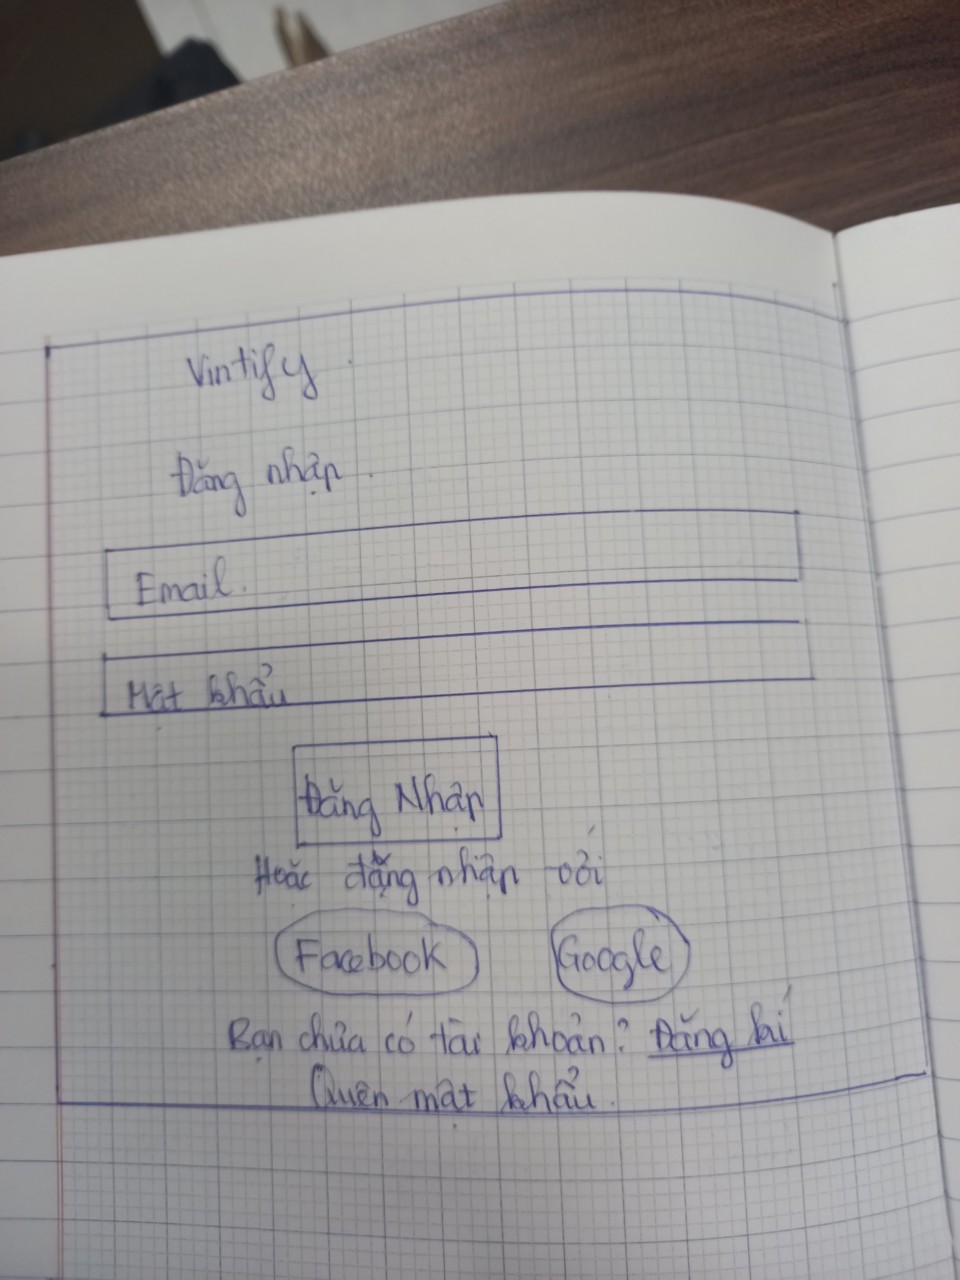 Vintify.
Đăng nhập.
Email.
Mật khẩu
Đăng Nhập
Hoặc đăng nhập với
Facebook Google
Bạn chưa có tài khoản? Đăng kí
Quên mật khẩu.